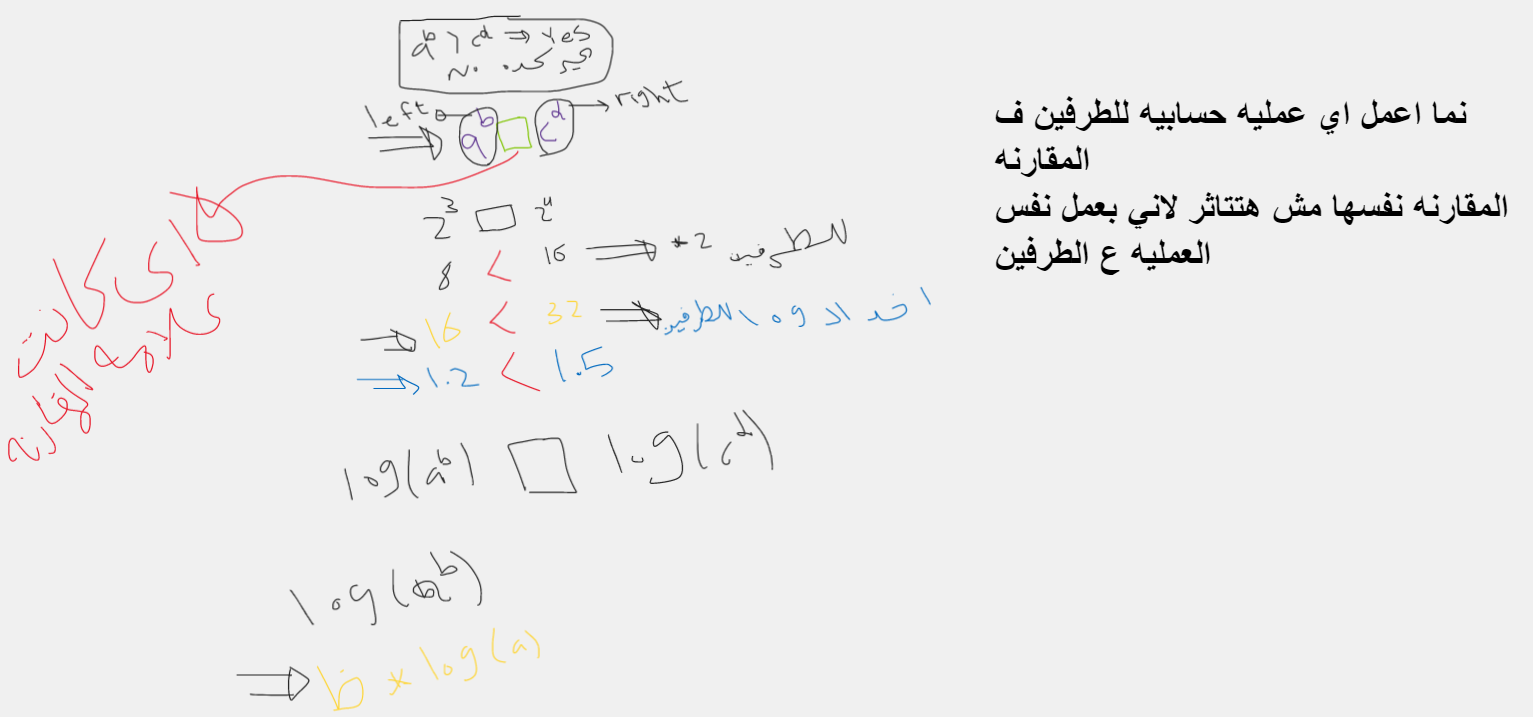 a^b > c^d ⇒ yes
غير كده No
left
right
a^b □ c^d
اى كانت
علامه المقارنه
2^3 □ 2^4
8 < 16 ⇒ *2 للطرفين
⇒ 16 < 32 ⇒ اخد ال log للطرفين
⇒ 1.2 < 1.5
log(a^b) □ log(c^d)
log(a^b)
⇒ b * log(a)
نما اعمل اي عمليه حسابيه للطرفين ف
المقارنه
المقارنه نفسها مش هتتاثر لاني بعمل نفس
العمليه ع الطرفين